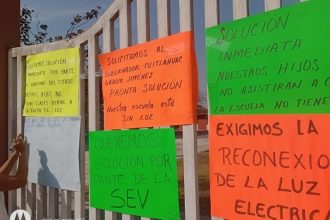 QUEREMOS SOLUCIÓN
INMEDIATA POR PARTE
DEL GOBIERNO DEL ESTADO
HIJOS NO
CLASES DEBIDO A
LA LUZ
SOLICITAMOS AL
GOBERNADOR CUITLAHUAC
GARCIA JIMÉNEZ
PRONTA SOLUCIÓN
Nuestra escuela está
SIN LUZ
QUEREMOS
SOLUCION POR
PARTE DE LA
SEV
SOLUCIÓN
INMEDIATA
NUESTROS HIJOS
NO ASISTIRAN A
LA ESCUELA NO TIENE
EXIGIMOS LA
RECONEXIO
DE LA LUZ
ELECTRIC